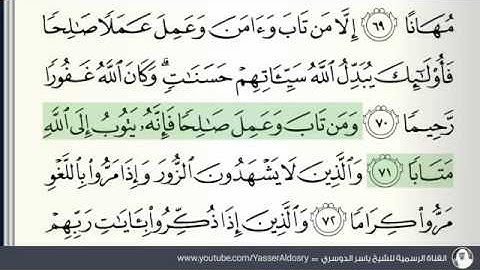 مُهَانًا ٦٩ إِلَّا مَن تَابَ وَءَامَنَ وَعَمِلَ عَمَلًا صَـٰلِحًا
فَأُو۟لَـٰٓئِكَ يُبَدِّلُ ٱللَّهُ سَيِّـَٔاتِهِمْ حَسَنَـٰتٍ ۗ وَكَانَ ٱللَّهُ غَفُورًا
رَّحِيمًا ٧٠ وَمَن تَابَ وَعَمِلَ صَـٰلِحًا فَإِنَّهُۥ يَتُوبُ إِلَى ٱللَّهِ
مَتَابًا ٧١ وَٱلَّذِينَ لَا يَشْهَدُونَ ٱلزُّورَ وَإِذَا مَرُّوا۟ بِٱللَّغْوِ
مَرُّوا۟ كِرَامًا ٧٢ وَٱلَّذِينَ إِذَا ذُكِّرُوا۟ بِـَٔايَـٰتِ رَبِّهِمْ
القناة الرسمية للشيخ ياسر الدوسري = www.youtube.com/YasserAldosry